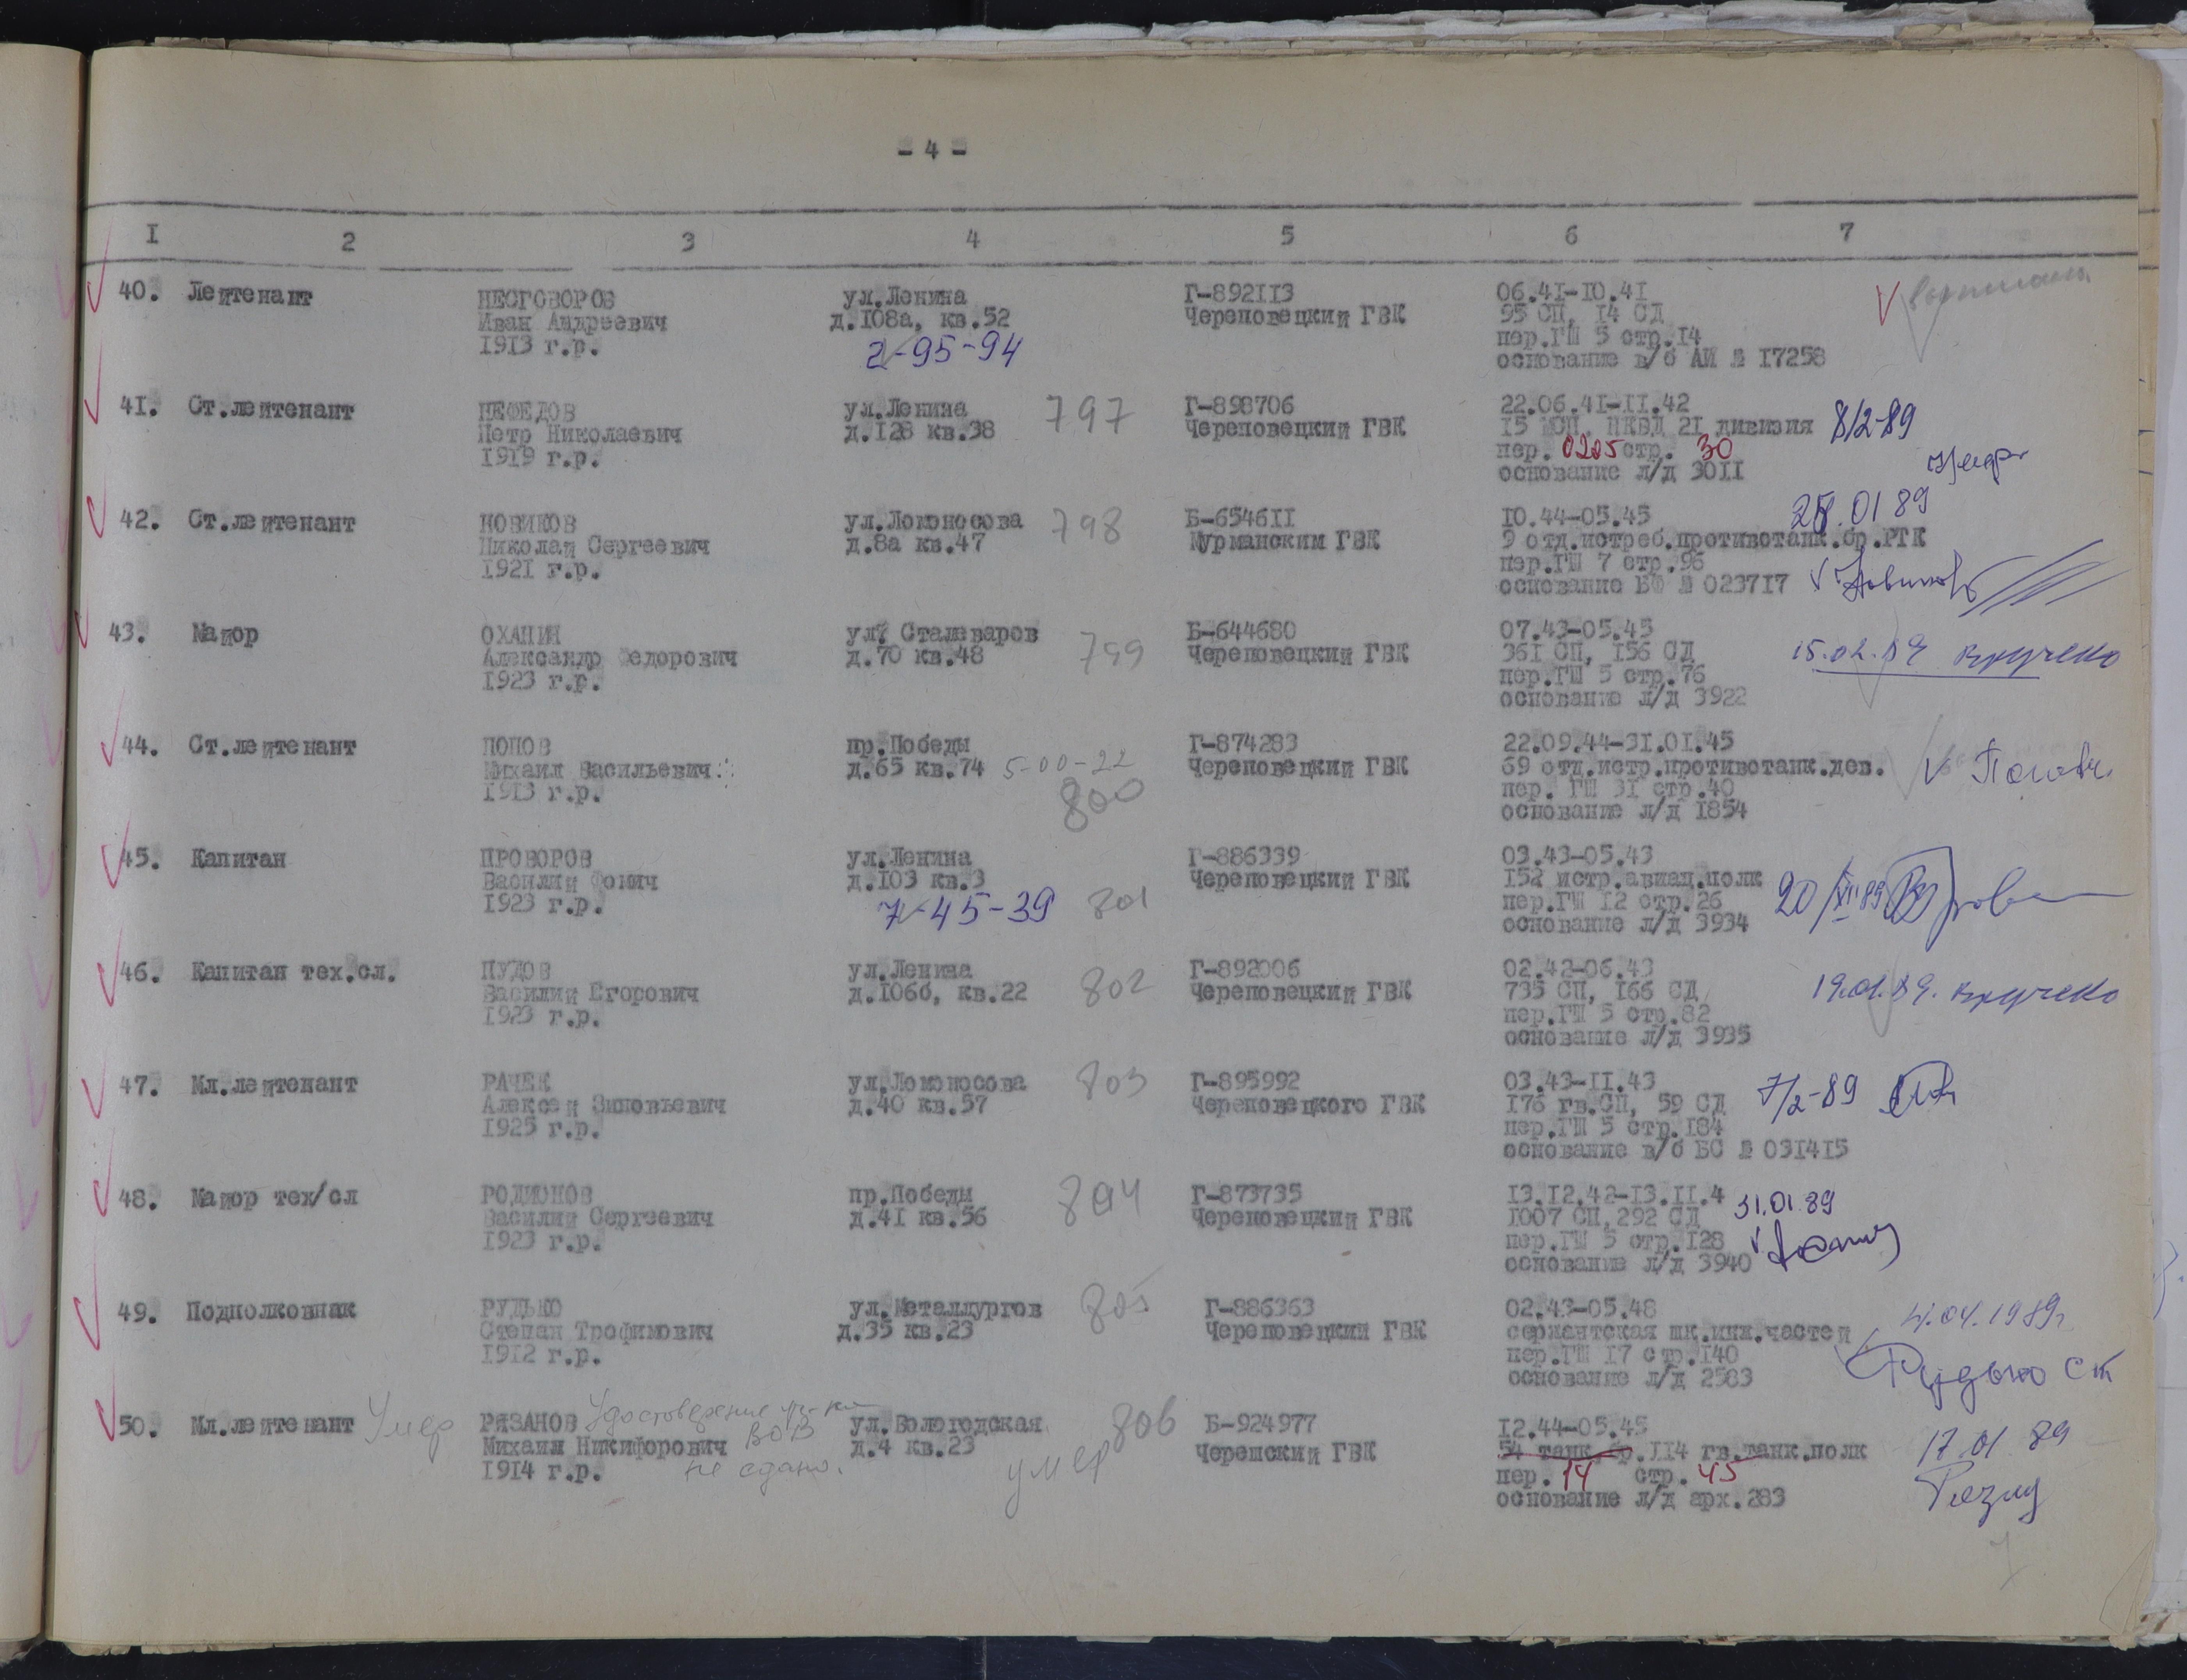 - 4 -
I 2 3 4 5 6 7
40. Лейтенант НЕОГОВОРОВ ул.Ленина Г-892113 06.41-10.41
Иван Андреевич д.108а, кв.52 Череповецкий ГВК 95 СП, 14 СД
1913 г.р. 2-95-94 пер.ГШ 5 стр.14
основание в/б АИ № 17258
41. Ст.лейтенант НЕФЕДОВ ул.Ленина 797 Г-898706 22.06.41-11.42
Петр Николаевич д.128 кв.38 Череповецкий ГВК 15 МСП, НКВД 21 дивизия 8/2-89
1919 г.р. пер. 0205 стр. 30
основание л/д 3011
42. Ст.лейтенант НОВИКОВ ул.Ломоносова 798 Б-654611 10.44-05.45 01 89
Николай Сергеевич д.8а кв.47 Мурманским ГВК 9 отд.истреб.противотанк.бр.РГК
1921 г.р. пер.ГШ 7 стр.96
основание БФ № 023717 Новиков
43. Майор ОХАПИН ул. Сталеваров 799 Б-644680 07.43-05.45
Александр Федорович д.70 кв.48 Череповецкий ГВК 361 СП, 156 СД 15.02.89 вручено
1923 г.р. пер.ГШ 5 стр.76
основание л/д 3922
44. Ст.лейтенант ПОПОВ пр.Победы Г-874283 22.09.44-31.01.45
Михаил Васильевич д.65 кв.74 5-00-22 Череповецкий ГВК 69 отд.истр.противотанк.див.
1913 г.р. 800 пер. ГШ 31 стр.40
основание л/д 1854
45. Капитан ПРОВОРОВ ул.Ленина Г-886339 03.43-05.43
Василий Фомич д.103 кв.3 Череповецкий ГВК 152 истр.авиац.полк
1923 г.р. 7-45-39 801 пер.ГШ 12 стр.26 20/VI 89
основание л/д 3934
46. Капитан тех.сл. ПУДОВ ул.Ленина 802 Г-892006 02.42-06.43
Василий Егорович д.106б, кв.22 Череповецкий ГВК 735 СП, 166 СД 19.01.89. вручено
1923 г.р. пер.ГШ 5 стр.82
основание л/д 3935
47. Мл.лейтенант РАЧЕК ул.Ломоносова 803 Г-895992 03.43-11.43
Алексей Зиновьевич д.40 кв.57 Череповецкого ГВК 176 гв.СП, 59 СД 7/2-89
1925 г.р. пер.ГШ 5 стр.184
основание в/б БС № 031415
48. Майор тех/сл РОДИОНОВ пр.Победы 804 Г-873735 13.12.42-13.11.4
Василий Сергеевич д.41 кв.56 Череповецкий ГВК 1007 СП,292 СД 31.01.89
1923 г.р. пер.ГШ 5 стр.128
основание л/д 3940
49. Подполковник РУДЬКО ул.Металлургов 805 Г-886363 02.43-05.48
Степан Трофимович д.35 кв.23 Череповецкий ГВК сержантская шк.инж.частей 4.04.1989г
1912 г.р. пер.ГШ 17 стр.140
основание л/д 2583 Рудько СТ
50. Мл.лейтенант Умер РЯЗАНОВ Удостоверение уч-ка ВОВ не сдано. ул.Вологодская 806 Б-924977 12.44-05.45
Михаил Никифорович д.4 кв.23 умер Черепский ГВК 54 танк.бр.114 гв.танк.полк 17.01 89
1914 г.р. пер. 14 стр. 45
основание л/д арх.283